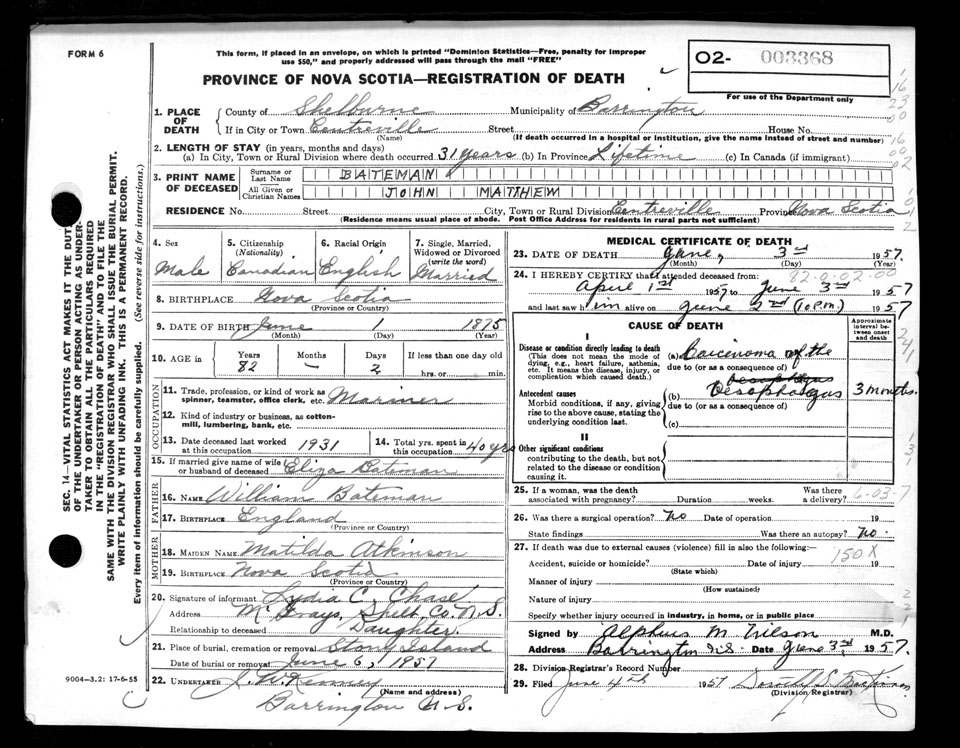 FORM 6
This form, if placed in an envelope, on which is printed "Dominion Statistics—Free, penalty for improper
use $50," and properly addressed will pass through the mail "FREE"
PROVINCE OF NOVA SCOTIA—REGISTRATION OF DEATH
02- 003368
For use of the Department only
SEC. 14—VITAL STATISTICS ACT MAKES IT THE DUTY
OF THE UNDERTAKER OR PERSON ACTING AS UNDER-
TAKER TO OBTAIN ALL THE PARTICULARS REQUIRED
IN THE "REGISTRATION OF DEATH" AND TO FILE THE
SAME WITH THE DIVISION REGISTRAR WHO SHALL ISSUE THE BURIAL PERMIT.
WRITE PLAINLY WITH UNFADING INK. THIS IS A PERMANENT RECORD.
Every item of information should be carefully supplied. (See reverse side for instructions.)
1. PLACE OF DEATH
County of Shelburne Municipality of Barrington
If in City or Town Centreville Street House No.
(Name) (If death occurred in a hospital or institution, give the name instead of street and number)
2. LENGTH OF STAY (in years, months and days)
(a) In City, Town or Rural Division where death occurred 31 years (b) In Province Lifetime (c) In Canada (if immigrant)
3. PRINT NAME OF DECEASED
Surname or Last Name BATEMAN
All Given or Christian Names JOHN MATTHEW
RESIDENCE No. Street City, Town or Rural Division Centreville Province Nova Scotia
(Residence means usual place of abode. Post Office Address for residents in rural parts not sufficient)
4. Sex
Male
5. Citizenship (Nationality)
Canadian
6. Racial Origin
English
7. Single, Married, Widowed or Divorced (write the word)
Married
8. BIRTHPLACE Nova Scotia
(Province or Country)
9. DATE OF BIRTH June 1 1875
(Month) (Day) (Year)
10. AGE in Years Months Days If less than one day old
82 — 2 hrs. or min.
OCCUPATION
11. Trade, profession, or kind of work as spinner, teamster, office clerk, etc. Mariner
12. Kind of industry or business, as cotton-mill, lumbering, bank, etc.
13. Date deceased last worked at this occupation 1931
14. Total yrs. spent in this occupation 40 yrs
15. If married give name of wife or husband of deceased Eliza Bateman
FATHER
16. NAME William Bateman
17. BIRTHPLACE England
(Province or Country)
MOTHER
18. MAIDEN NAME Matilda Atkinson
19. BIRTHPLACE Nova Scotia
(Province or Country)
20. Signature of informant Lydia C. Chase
Address McGrays, Shelb. Co. N.S.
Relationship to deceased Daughter.
21. Place of burial, cremation or removal Stony Island
Date of burial or removal June 6, 1957
22. UNDERTAKER J. W. Kenney
(Name and address)
Barrington N.S.
9004—3.2: 17-6-55
MEDICAL CERTIFICATE OF DEATH
23. DATE OF DEATH June, 3rd 1957
(Month) (Day) (Year)
24. I HEREBY CERTIFY that I attended deceased from:
82-0-02-00
April 1st 1957 to June 3rd 1957
and last saw him alive on June 2nd (10 P.M.) 1957
CAUSE OF DEATH
Approximate interval between onset and death
I
Disease or condition directly leading to death
(This does not mean the mode of dying, e.g., heart failure, asthenia, etc. It means the disease, injury, or complication which caused death.)
(a) Carcinoma of the
due to (or as a consequence of)
Antecedent causes
Morbid conditions, if any, giving rise to the above cause, stating the underlying condition last.
(b) Oesophagus 3 months.
due to (or as a consequence of)
(c)
II
Other significant conditions
contributing to the death, but not related to the disease or condition causing it.
25. If a woman, was the death associated with pregnancy? Duration weeks. Was there a delivery?
6-03-7
26. Was there a surgical operation? No Date of operation 19
State findings Was there an autopsy? No.
27. If death was due to external causes (violence) fill in also the following:—
150X
Accident, suicide or homicide? Date of injury 19
(State which)
Manner of injury
(How sustained)
Nature of injury
Specify whether injury occurred in industry, in home, or in public place
Signed by Alpheus M. Wilson M.D.
Address Barrington N.S. Date June 3rd, 1957.
28. Division Registrar's Record Number
29. Filed June 4th 1957
(Division Registrar)